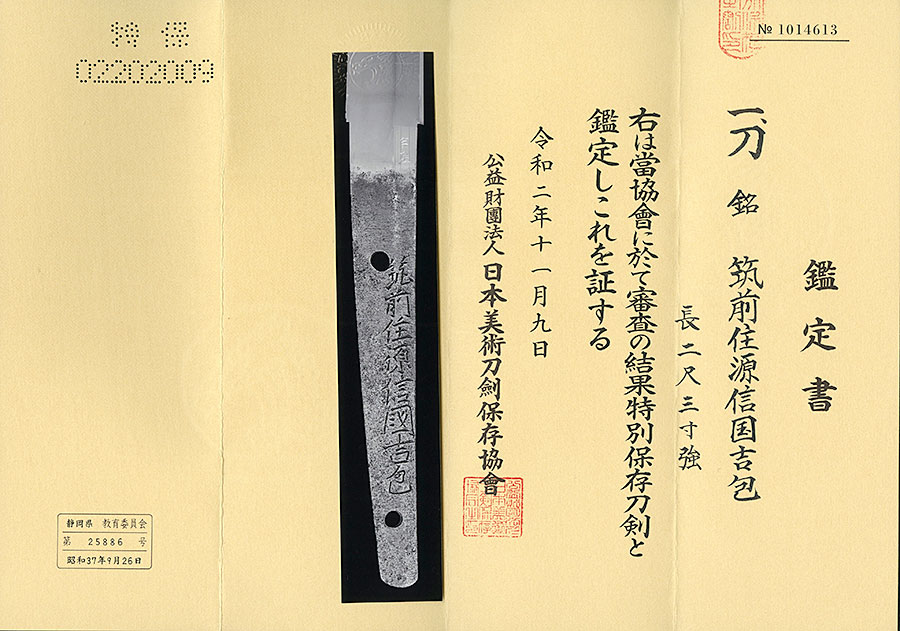 № 1014613
鑑定書
一、刀 銘 筑前住源信国吉包
長二尺三寸強
右は當協會に於て審査の結果特別保存刀剣と
鑑定しこれを証する
令和二年十一月九日
公益財團法人 日本美術刀劍保存協會
筑前住源信國吉包
特保
02202009
静岡県 教育委員会
第 25886 号
昭和37年9月26日